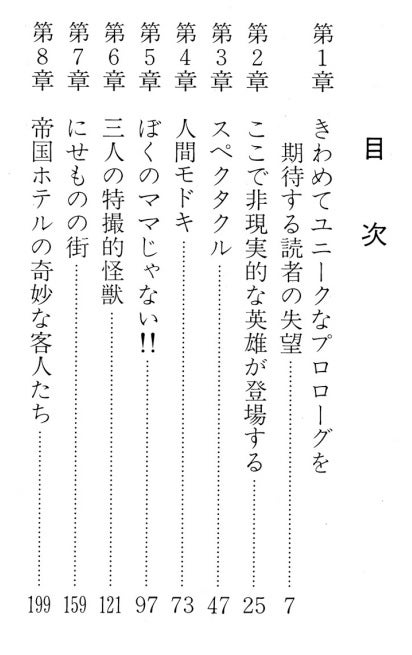 目次
第1章 きわめてユニークなプロローグを
期待する読者の失望…………7
第2章 ここで非現実的な英雄が登場する…………25
第3章 スペクタクル…………47
第4章 人間モドキ…………73
第5章 ぼくのママじゃない!!…………97
第6章 三人の特撮的怪獣…………121
第7章 にせものの街…………159
第8章 帝国ホテルの奇妙な客人たち…………199